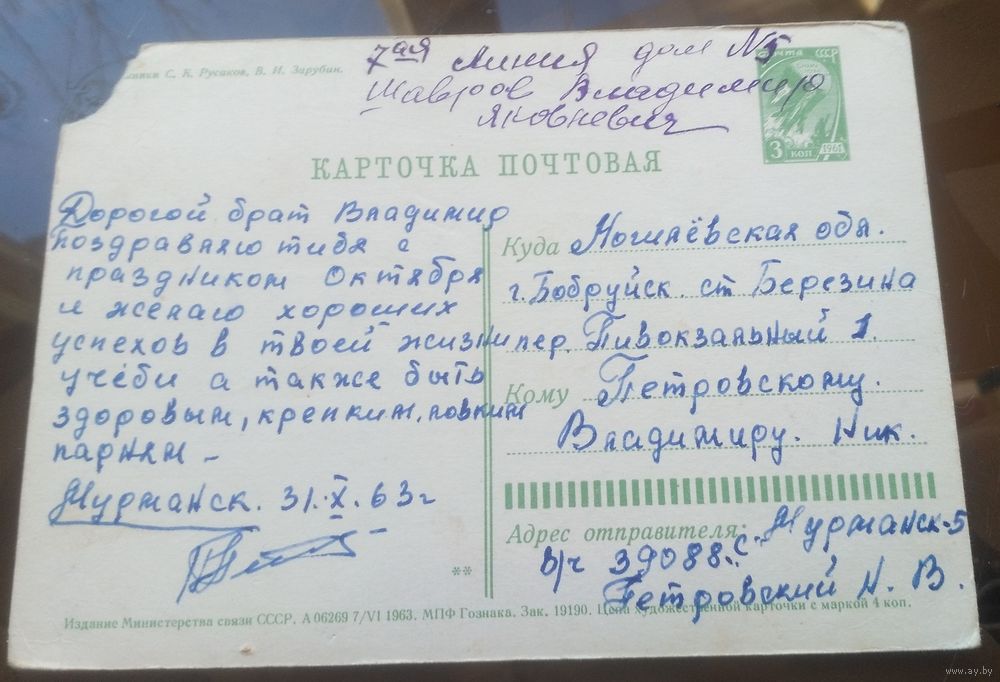 7ая Линия дом №5
Шавров Владимир
Яковневич
С. К. Русаков, В. И. Зарубин.
ПОЧТА СССР
3 КОП 1961
КАРТОЧКА ПОЧТОВАЯ
Дорогой брат Владимир
поздравляю тибя с
праздником Октября
и желаю хороших
успехов в твоей жизни
учёби а также быть
здоровым, крепким, ловким
парнем –
Мурманск. 31.X.63г
Куда Могилёвская обл.
г. Бобруйск. ст Березина
пер. Пивокзальный 1.
Кому Петровскому.
Владимиру. Ник.
Адрес отправителя: Мурманск-5
в/ч 39088.с.
Петровский Н. В.
**
Издание Министерства связи СССР. А 06269 7/VI 1963. МПФ Гознака. Зак. 19190. Цена художественной карточки с маркой 4 коп.
www.ay.by